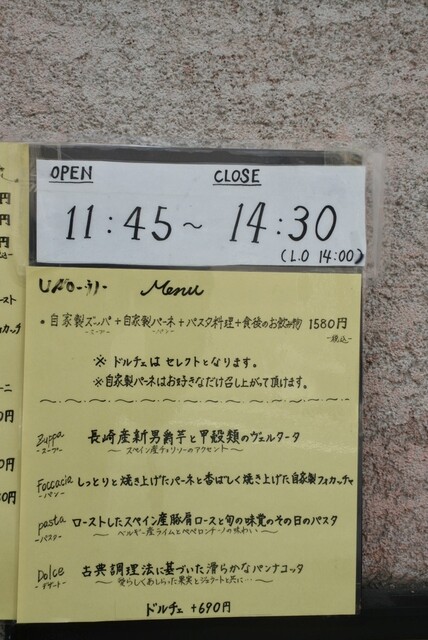 OPEN CLOSE
11:45～ 14:30
(L.O 14:00)
Menu
・自家製ズッパ+自家製パーネ+パスタ料理+食後のお飲み物 1580円
-スープ- -パン- -税込-
※ ドルチェは セレクトとなります。
※自家製パーネはお好きなだけ召し上がって頂けます。
Zuppa 長崎産新男爵芋と甲殻類のヴェルタータ
-スープ- ～スペイン産チョリソーのアクセント～
Foccacia しっとりと焼き上げたパーネと香ばしく焼き上げた自家製フォカッチャ
-パン-
pasta ローストしたスペイン産豚肩ロースと旬の味覚のその日のパスタ
-パスタ- ～ベルギー産ライムとペペロンチーノの味わい～
Dolce 古典調理法に基づいた滑らかなパンナコッタ
-デザート- ～愛らしくあしらった果実とジェラートと共に…～
ドルチェ +690円